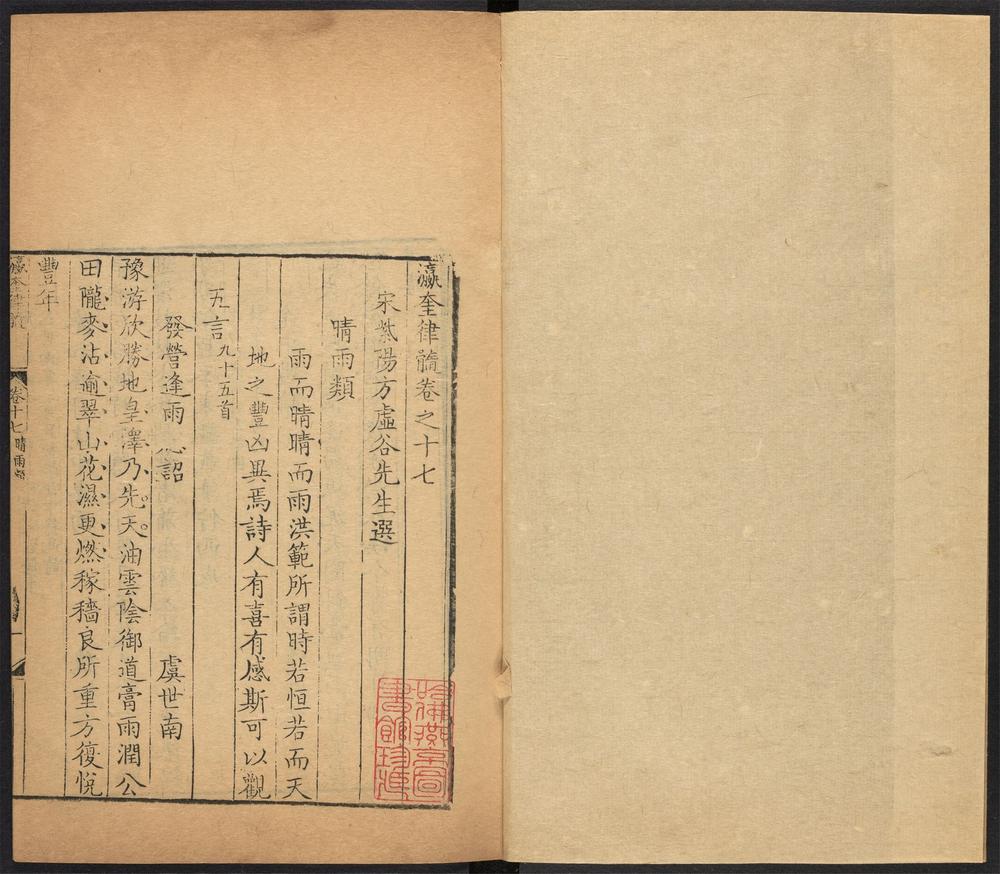 瀛奎律髓卷之十七
宋紫陽方虛谷先生選
晴雨類
雨而晴晴而雨洪範所謂時若恒若而天
地之豐凶異焉詩人有喜有感斯可以觀
五言九十五首
發營逢雨應詔 虞世南
豫游欣勝地皇澤乃先天油雲陰御道膏雨潤公
田隴麥沾逾翠山花濕更燃稼穡良所重方復悅
豐年
瀛奎律髓 卷十七 晴雨類 一
哈佛燕京圖書館珍藏